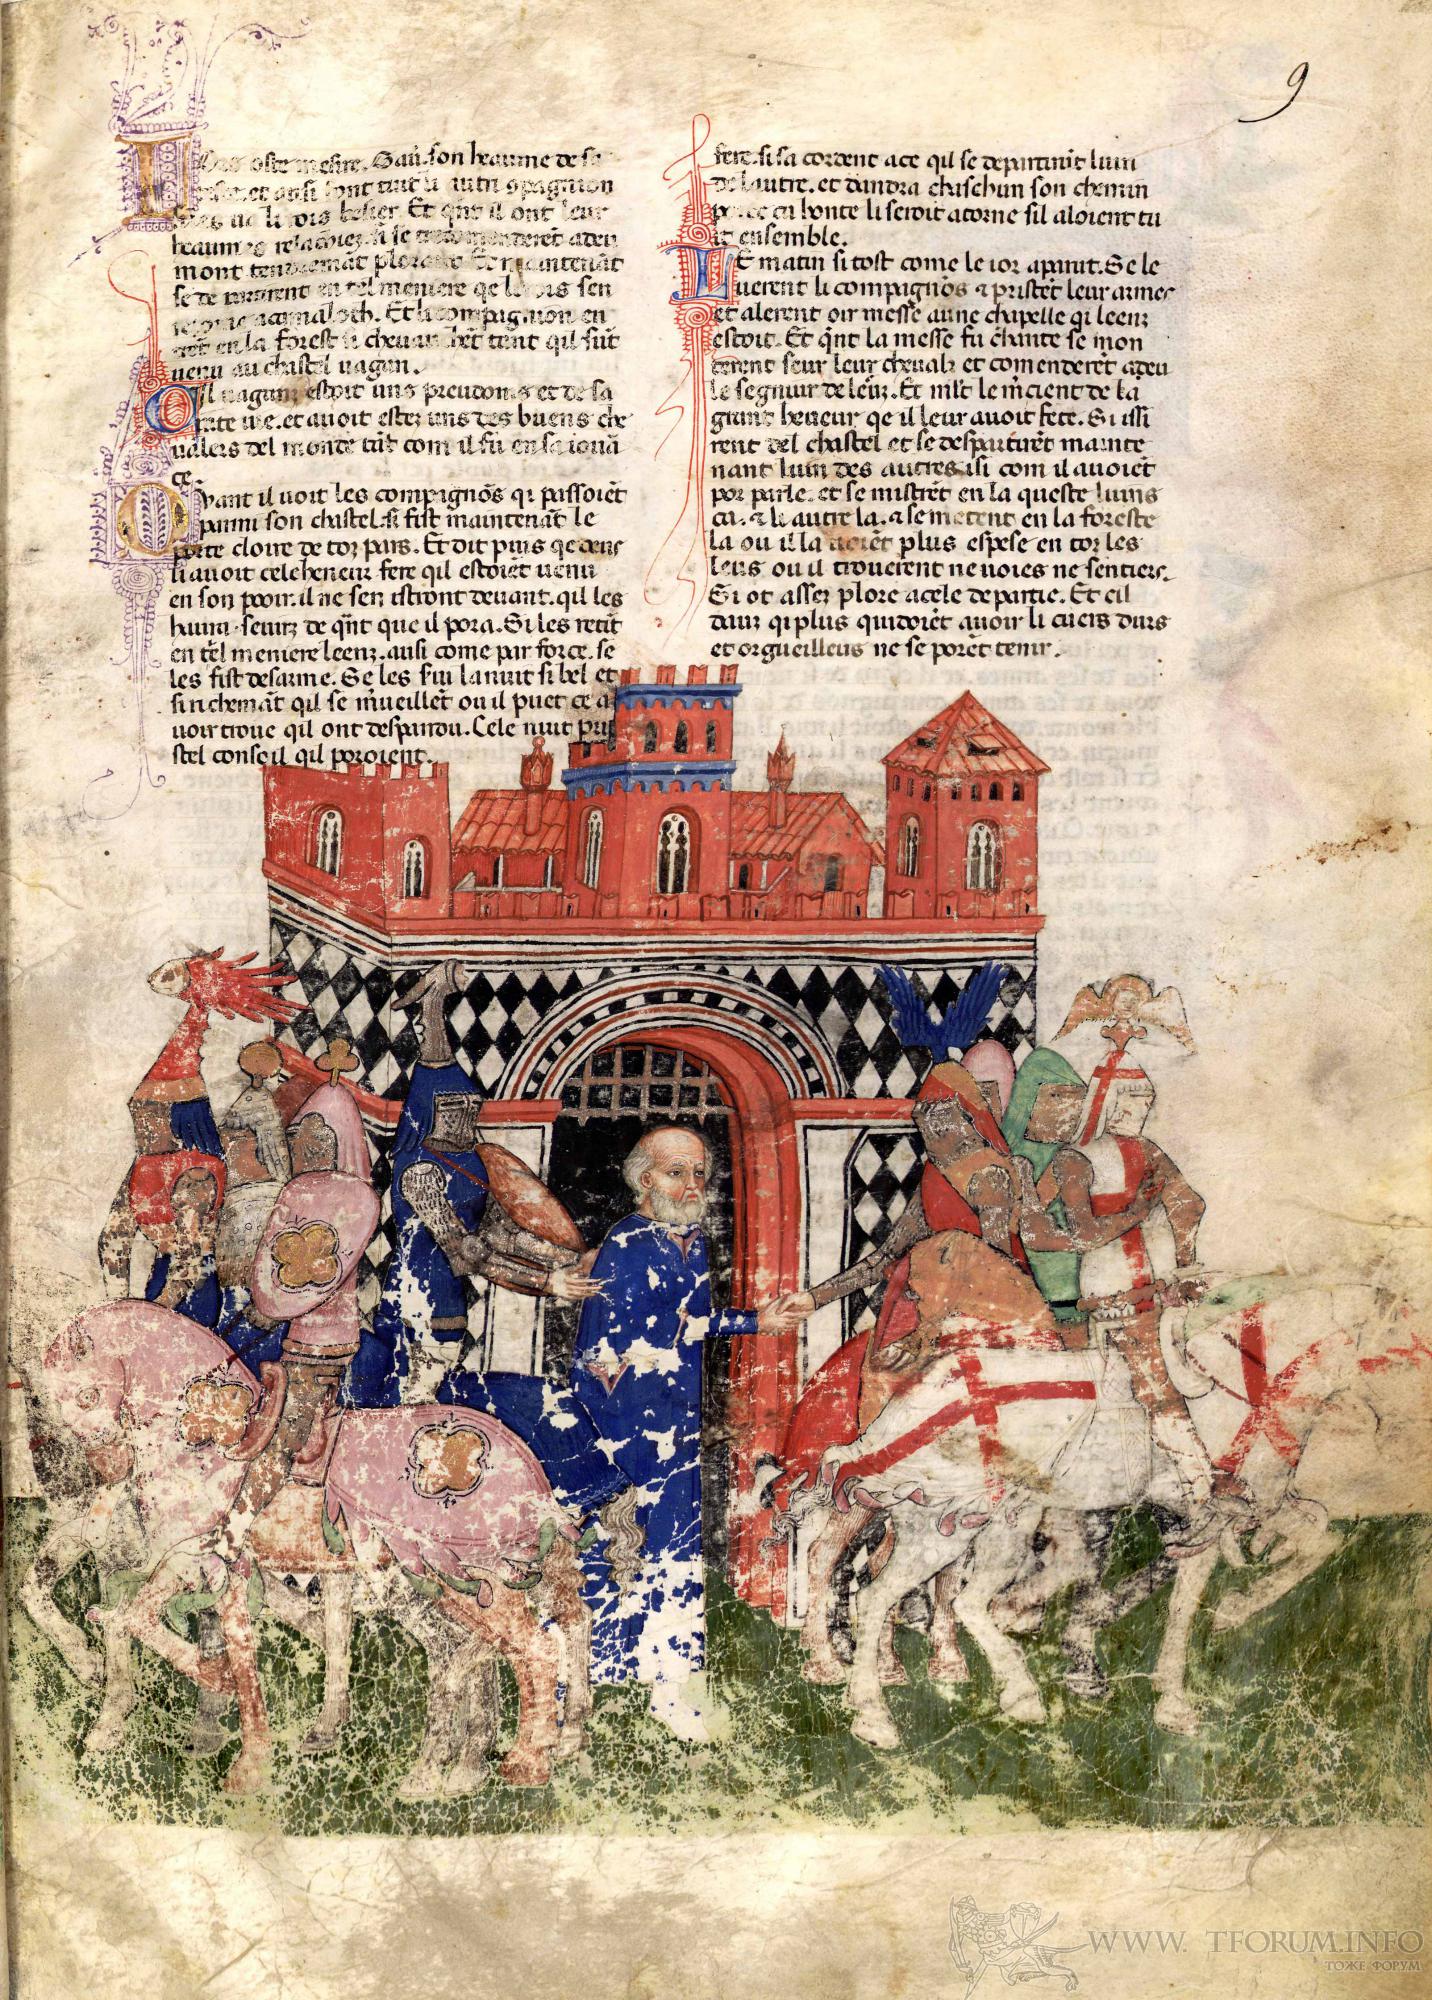 9
oste mesire. Gau. son heaume de sa
et ausi font tuit li autri 9pagnion
li rois Et q̄nt il ont leur
heaumes si se deu
mont tendremāt
se de partirent en tel meniere qe le rois sen
camaloth. Et li compagnion en
rēt en la forest si cheuauchēt tant qil sūt
uenu au chastel uagan.
Cil uagan estoit uns preudoms et de sa
inte uie. et auoit estez uns des buens che
ualiers del monde tāt com il fu en sa iouā
ce.
Quant il uoit les compagnōs qi passoiēt
parmi son chastel. si fist maintenāt le
porte cloire de toz pars. Et dit puis qe deus
li auoit cele heneur fere qil estoiēt uenu
en son pooir. il ne sen istront deuant. qil les
haura seruiz de q̄nt que il pora. Si les retīt
en tēl meniere leenz. ausi come par force. se
les fist desarme. Se les la nuit si bel et
si richemāt qil se mueillēt ou il puet ce a
uoir troue qil ont despandu. Cele nuit
stel conseil qil poroient.
fere. si sa cordent a ce qil se departirūt luin
de lautre. et tandra chaschun son chemin
por ce ca honte li seroit atorne sil aloient tu
it ensemble.
LE matin si tost come le ior aparut. Se le
uerent li compagnōs & pristēt leur armes
et alerent oir messe a une chapelle qi leenz
estoit. Et q̄nt la messe fu chante se mon
terent seur leur cheualz et comenderēt a deu
le segniur de leinz. Et mlt le mcient de la
grant heneur qe il leur auoit fete. Si issi
rent del chastel et se despartirēt mainte
nant luin des autres. isi com il auoiēt
por parle. et se mistrēt en la queste luins
ca. & li autre la. & se metent en la foreste
la ou il la uoiēt plus espese en toz les
leus ou il trouerent ne uoies ne sentiers.
Si ot assez plore a cele departie. Et cil
daus qi plus quidoiēt auoir li cuers durs
et orgueilleus ne se porēt tenir.
WWW. TFORUM.INFO
ТОЖЕ ФОРУМ